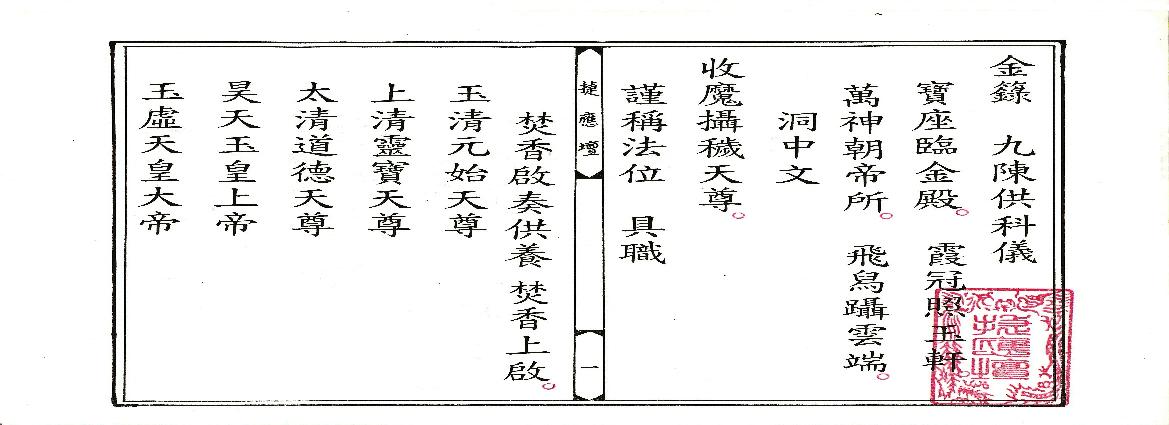 金籙　九陳供科儀
寶座臨金殿。霞冠照玉軒
萬神朝帝所。飛舄躡雲端。
洞中文
收魔攝穢天尊。
謹稱法位　具職
捷應壇
一
焚香啟奏供養 焚香上啟。
玉清元始天尊
上清靈寶天尊
太清道德天尊
昊天玉皇上帝
玉虛天皇大帝